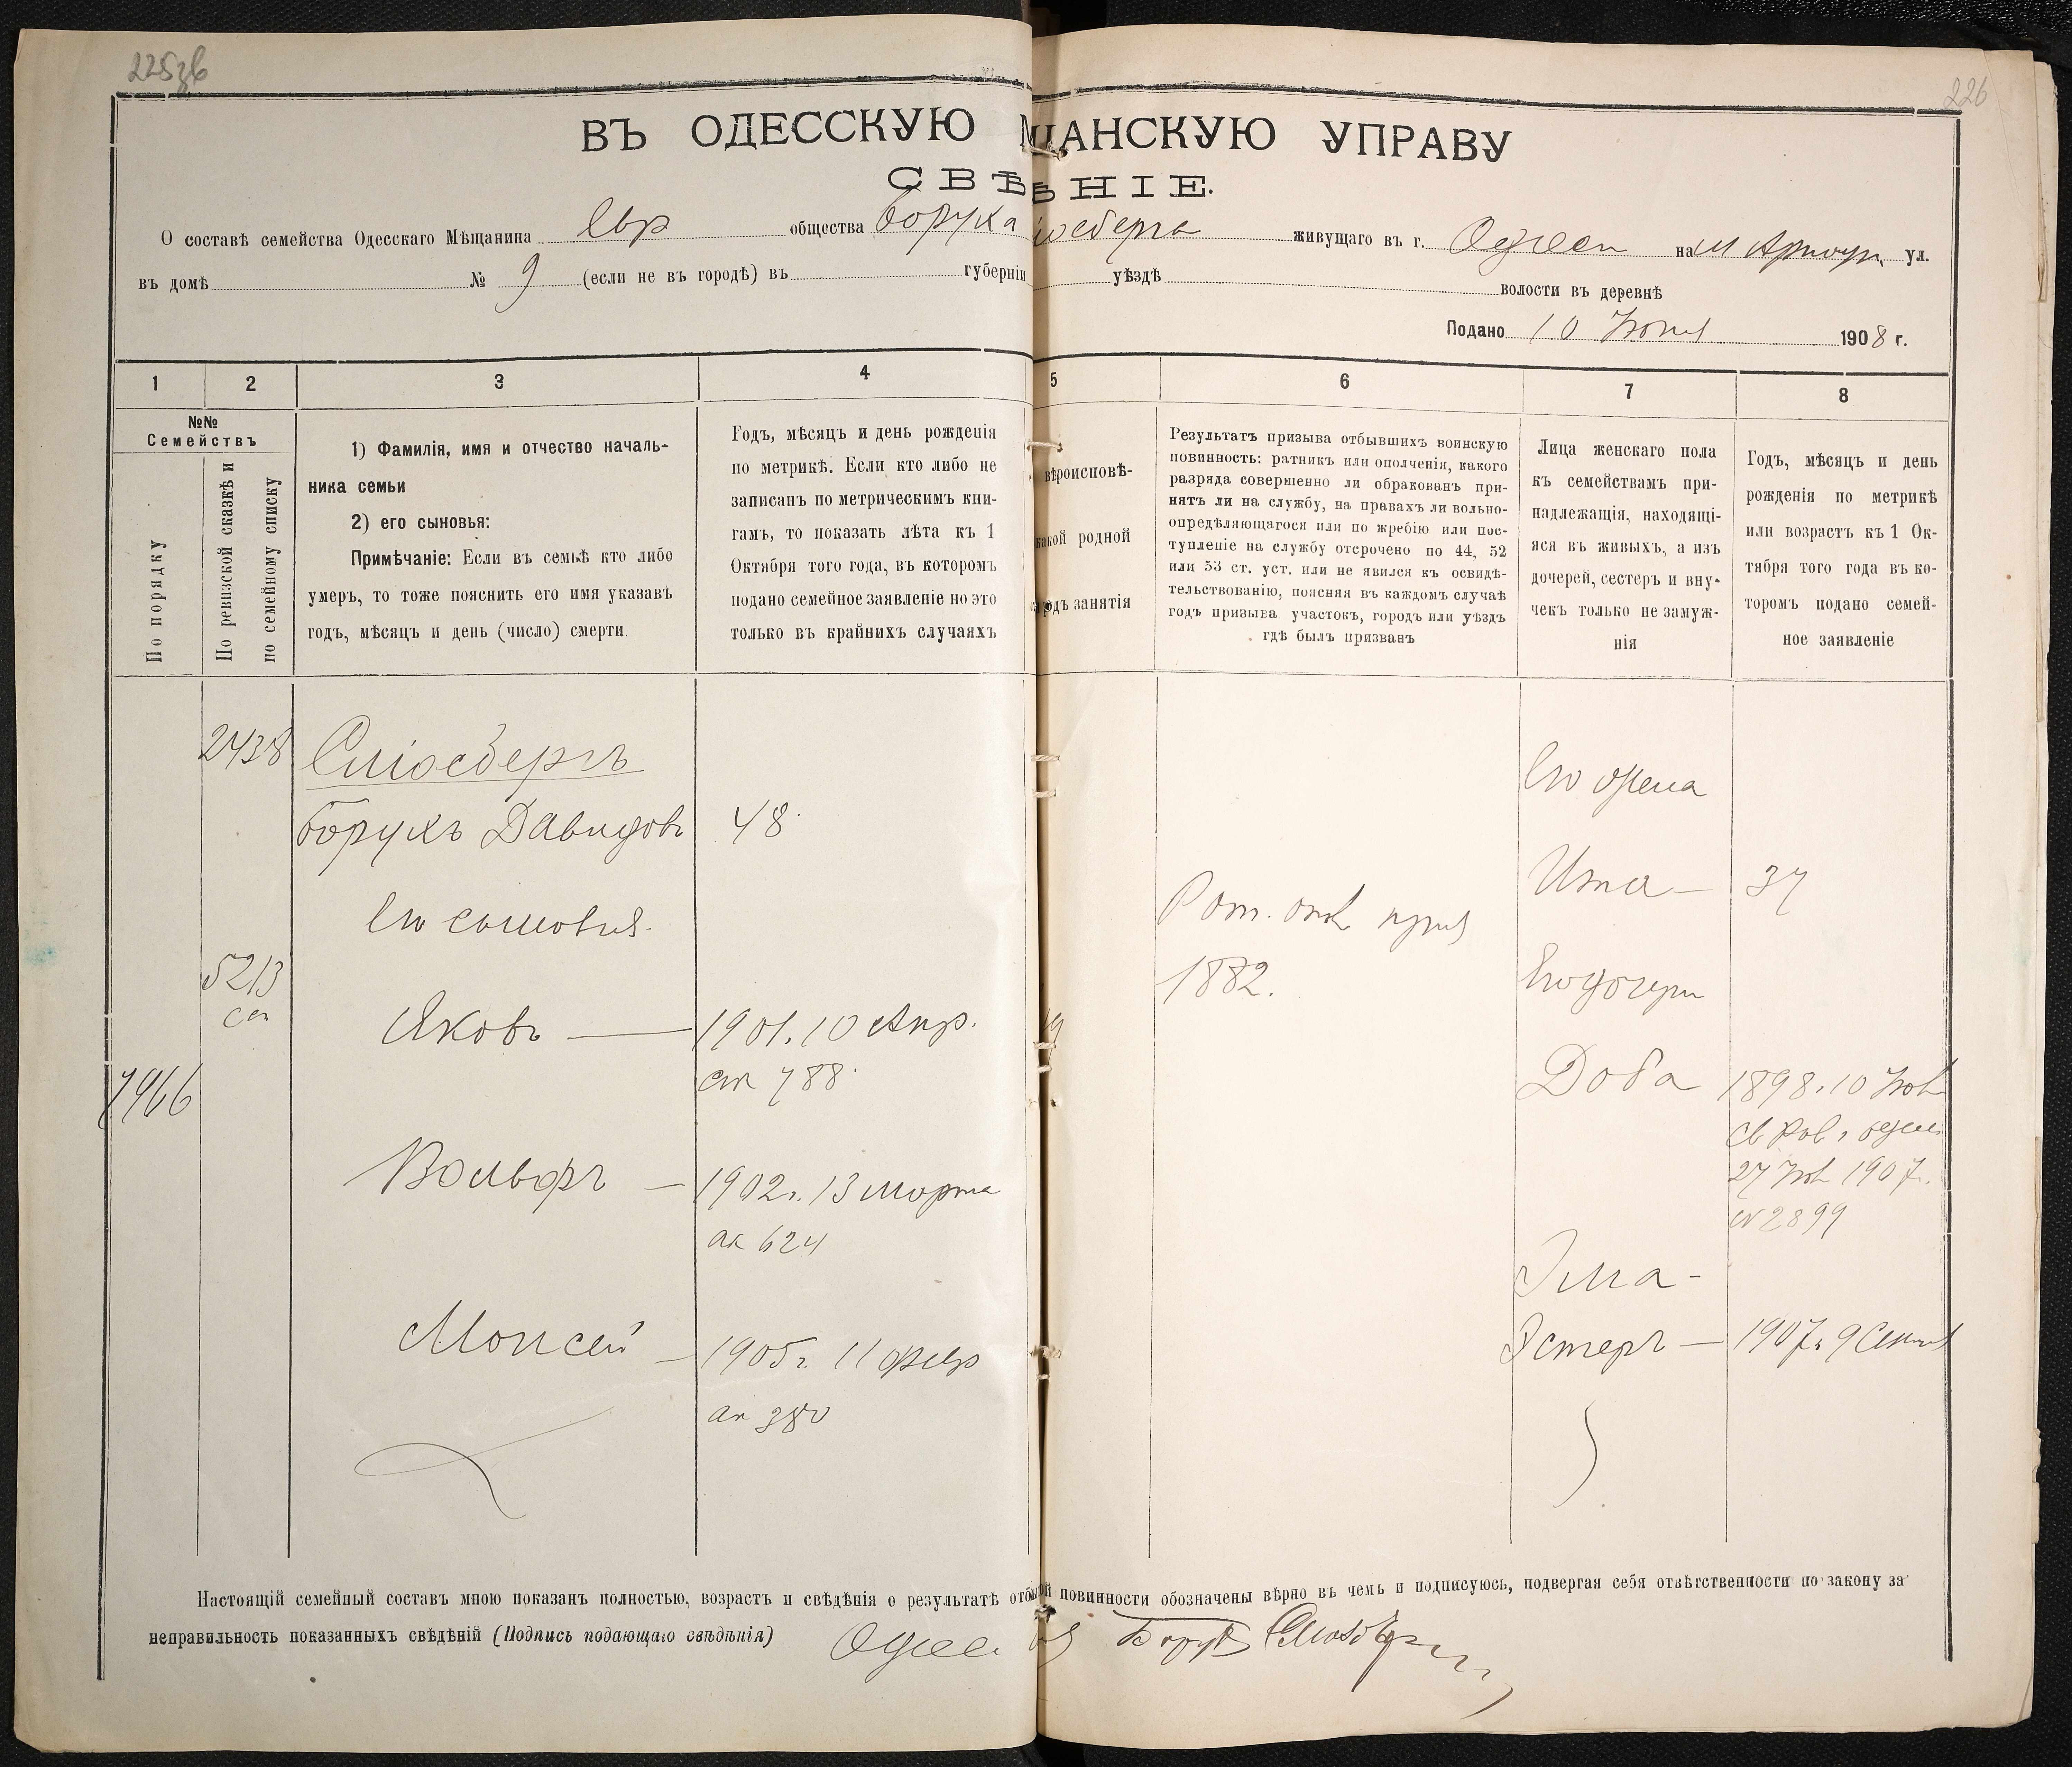 226
ВЪ ОДЕССКУЮ МѢЩАНСКУЮ УПРАВУ
СВѢДѢНІЕ.
О составѣ семейства Одесскаго Мѣщанина Евр общества Боруха живущаго въ г. Одесси на М Арнаут. ул.
въ домѣ № 9 (если не въ городѣ) въ губерніи уѣздѣ волости въ деревнѣ
Подано 10 1908 г.
1 2 3 4 5 6 7 8
№№
Семействъ
По порядку
По ревизской сказкѣ и
по семейному списку
1) Фамилія, имя и отчество началь-
ника семьи
2) его сыновья:
Примѣчаніе: Если въ семьѣ кто либо
умеръ, то тоже пояснить его имя указавъ
годъ, мѣсяцъ и день (число) смерти.
Годъ, мѣсяцъ и день рожденія
по метрикѣ. Если кто либо не
записанъ по метрическимъ кни-
гамъ, то показать лѣта къ 1
Октября того года, въ которомъ
подано семейное заявленіе но это
только въ крайнихъ случаяхъ
вѣроисповѣ-
родной
занятія
Результатъ призыва отбывшихъ воинскую
повинность: ратникъ или ополченія, какого
разряда совершенно ли обракованъ при-
нятъ ли на службу, на правахъ ли вольно-
опредѣляющагося или по жребію или пос-
тупленіе на службу отсрочено по 44, 52
или 53 ст. уст. или не явился къ освидѣ-
тельствованію, поясняя въ каждомъ случаѣ
годъ призыва участокъ, городъ или уѣздъ
гдѣ былъ призванъ
Лица женскаго пола
къ семействамъ при-
надлежащія, находящі-
яся въ живыхъ, а изъ
дочерей, сестеръ и вну-
чекъ только не замуж-
нія
Годъ, мѣсяцъ и день
рожденія по метрикѣ
или возрастъ къ 1 Ок-
тября того года въ ко-
торомъ подано семей-
ное заявленіе
2438 Сліосбергъ
Борухъ Давидовъ 48
Его сыновья
5213
Яковъ — 1901. 10 Апр.
788
7966
Вольфъ — 1902 г. 13 марта
ак 624
Моисей — 1905 г. 11 февр
ак 380
Рат. опол приз
1882.
Его жена
Ита — 37
Его дочери
Доба 1898. 10
27 1907.
№ 2899
Эстеръ — 1907 г. 9 Сент
Настоящій семейный составъ мною показанъ полностью, возрастъ и свѣдѣнія о результатѣ повинности обозначены вѣрно въ чемъ и подписуюсь, подвергая себя отвѣтственности по закону за
неправильность показанныхъ свѣдѣній (Подпись подающаго свѣдѣнія) Борухъ Сліозбергъ